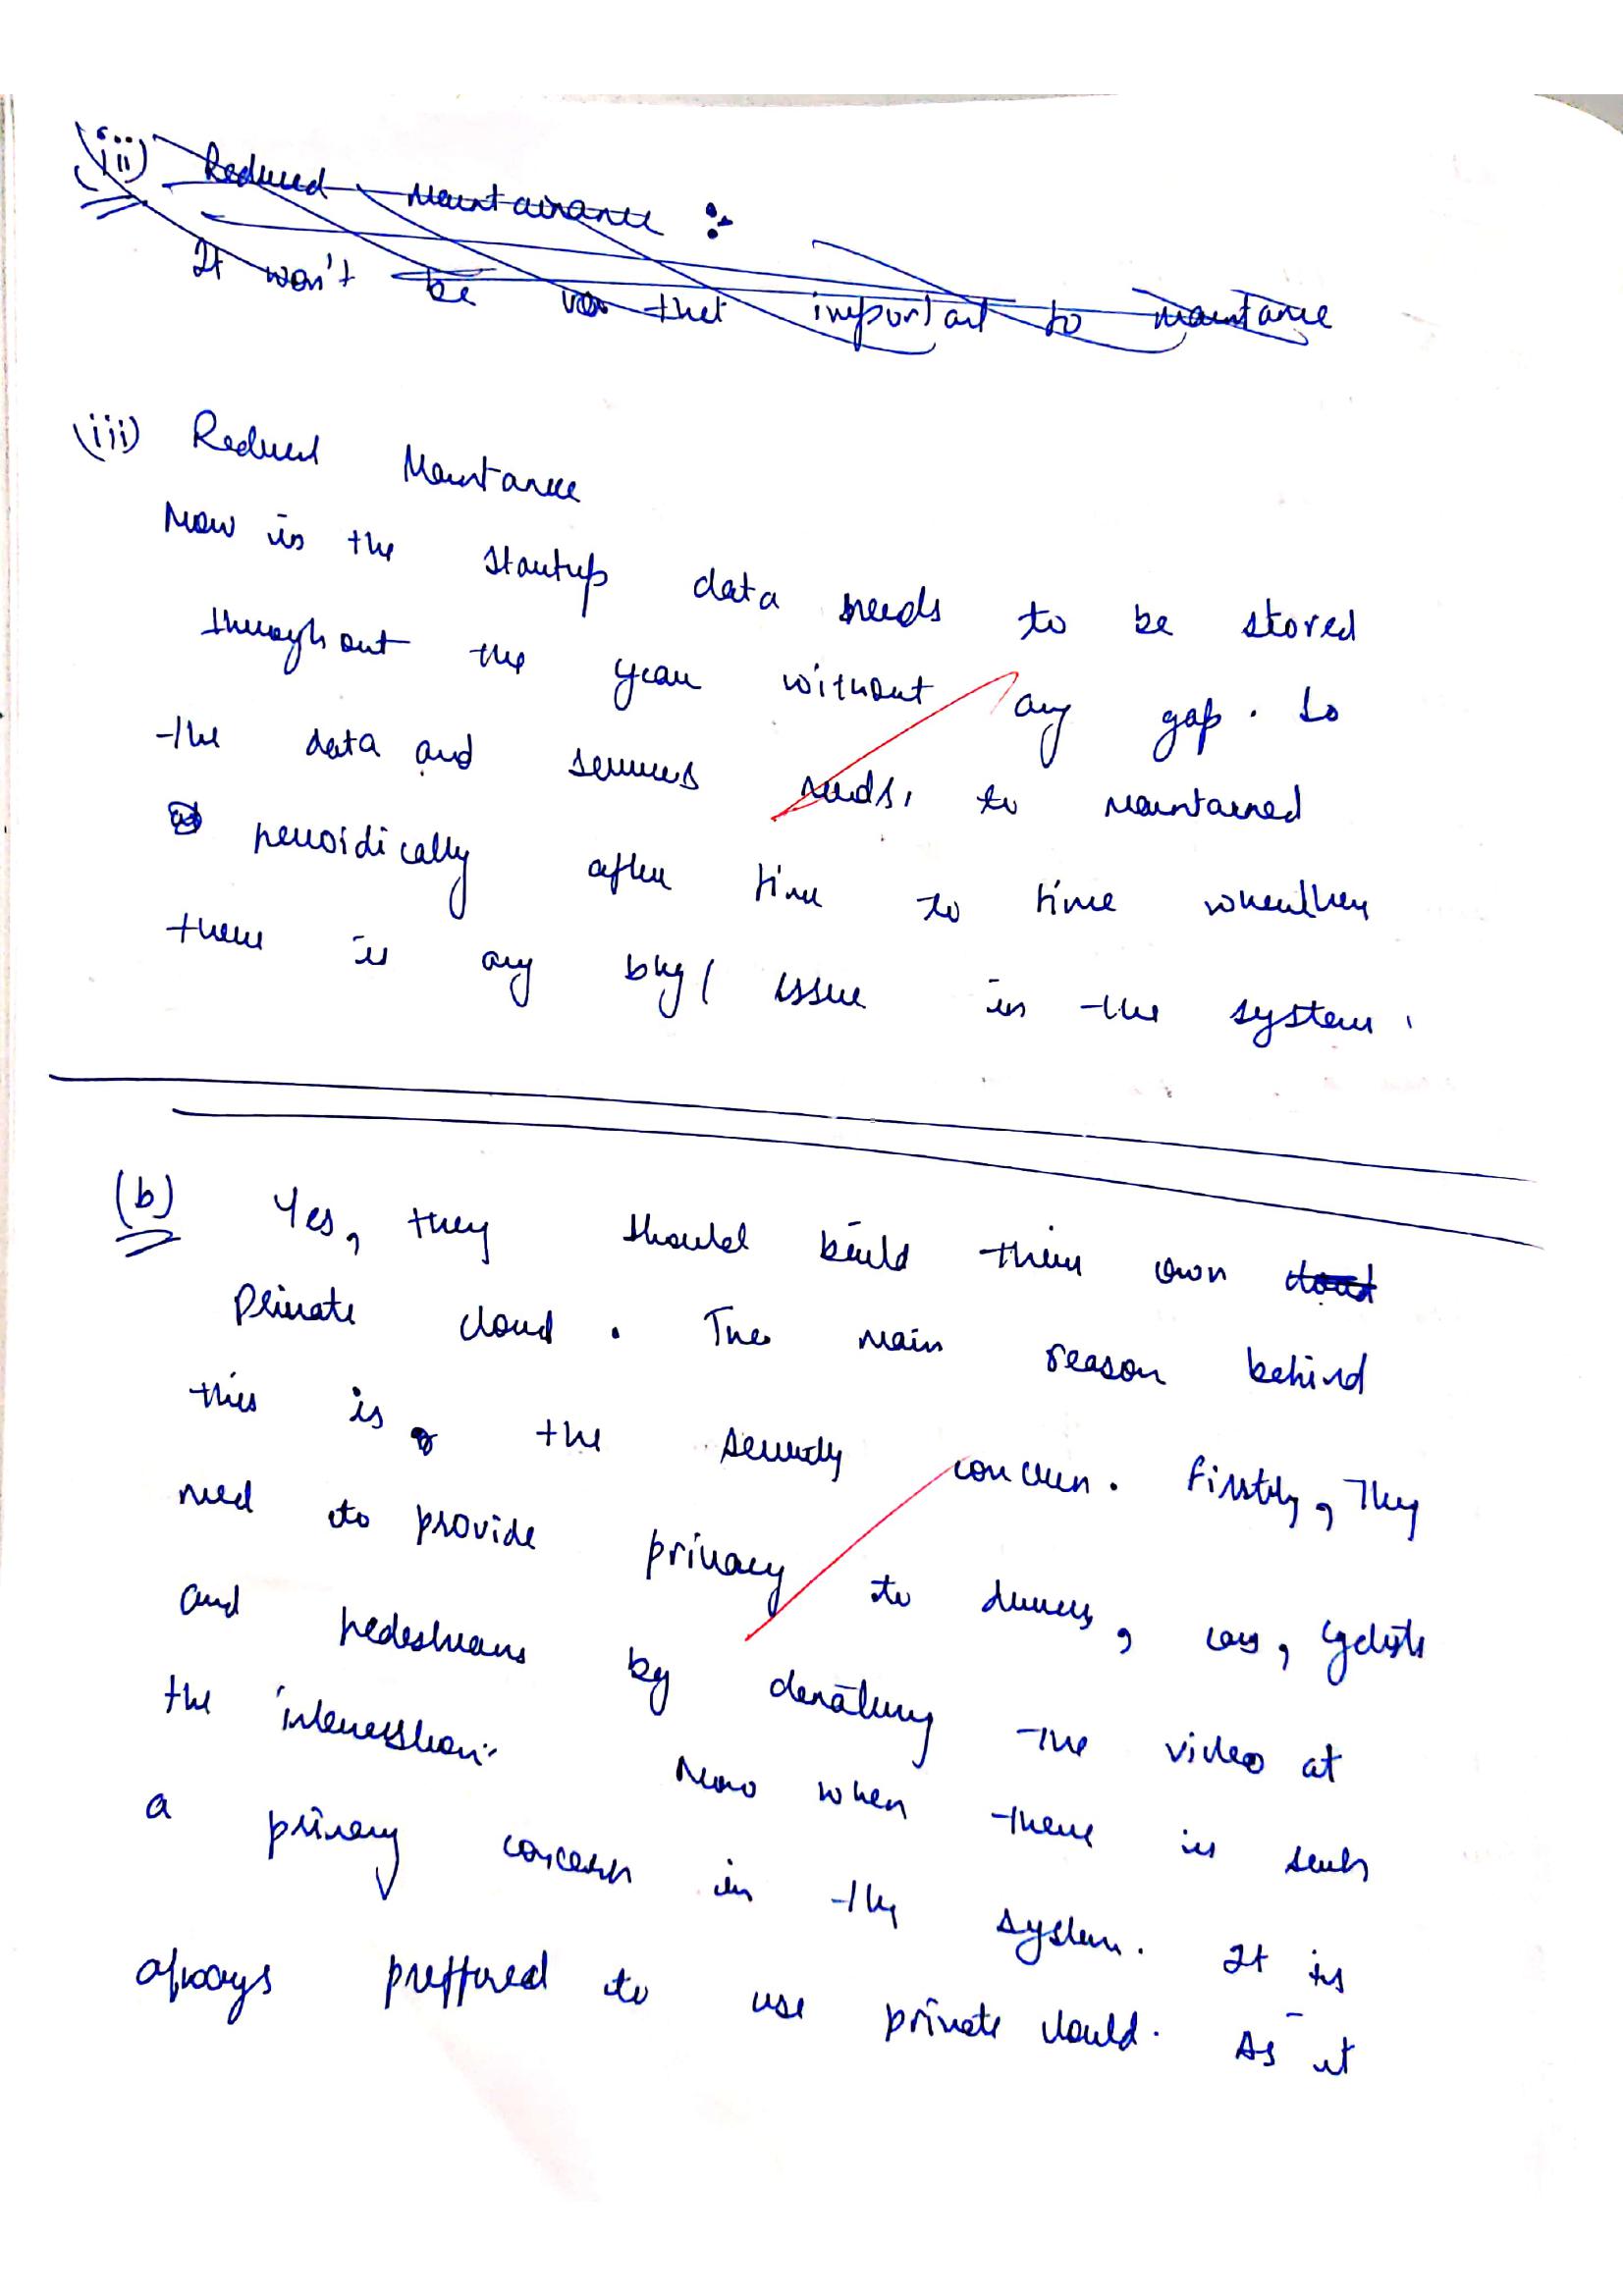 (iii) Reduced Maintainance :-
It won't be that important to maintance
(iii) Reduced Maintance
Now in the startup data needs to be stored
throughout the year without any gap. So
the data and servers needs, to maintained
peroidically after time to time wheather
there is any bug / issue in the system.
(b) Yes, they should build their own cloud
Private cloud. The main reason behind
this is the security concern. Firstly, They
need to provide privacy to drivers, cars, cyclists
and pedestrians by the video at
the intersection. Now when there is such
a privacy concern in the system. It is
always preffered to use private could. As it